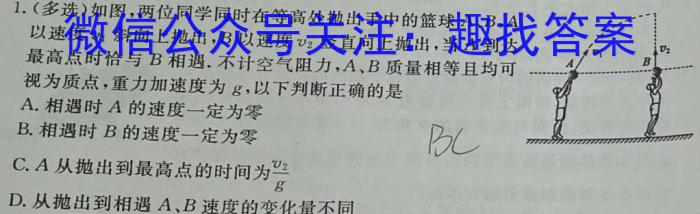 1.(多选)如图,两位同学同时在等高处抛出手中的篮球A、B,A
以速度v₁斜向上抛出,B以速度v₂竖直向上抛出,当A到达
微信公众号关注:趣找答案
最高点时恰与B相遇.不计空气阻力,A、B质量相等且均可
视为质点,重力加速度为g,以下判断正确的是
A.相遇时A的速度一定为零
B.相遇时B的速度一定为零
BC
C.A从抛出到最高点的时间为v₂/g
D.从抛出到相遇A、B速度的变化量不同
A
B
v₂